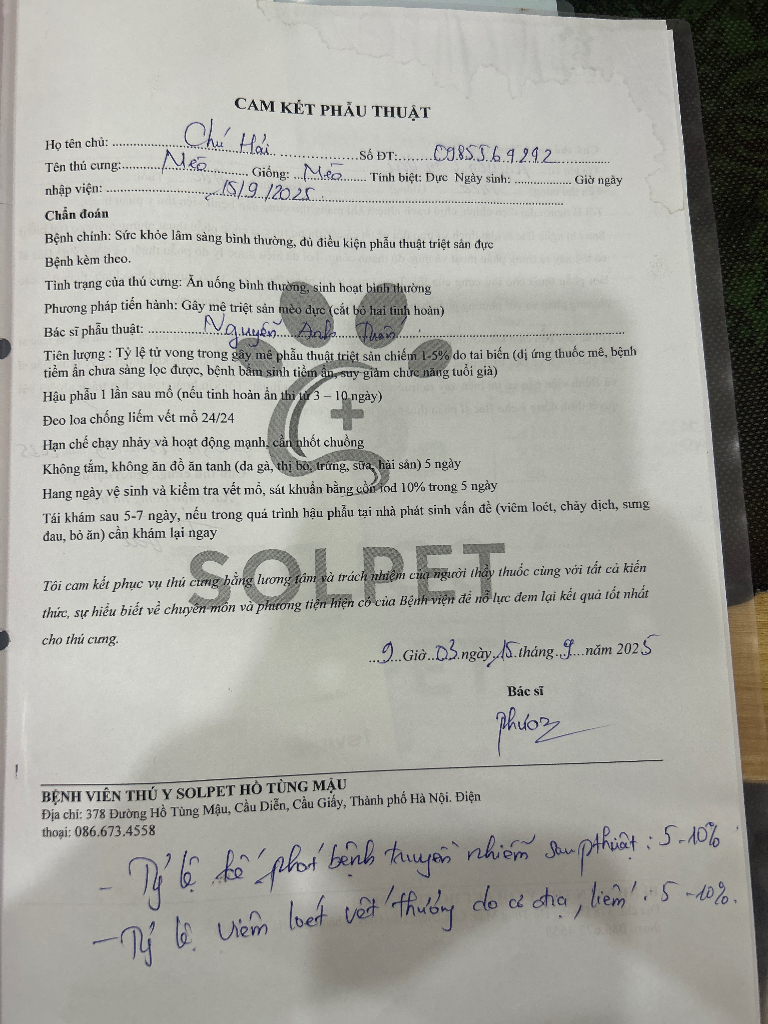 CAM KẾT PHẪU THUẬT
Họ tên chủ: Chú Hải Số ĐT: 0985569292
Tên thú cưng: Mèo Giống: Mèo Tính biệt: Dực Ngày sinh: Giờ ngày
nhập viện: 15/9/2025
Chẩn đoán
Bệnh chính: Sức khỏe lâm sàng bình thường, đủ điều kiện phẫu thuật triệt sản đực
Bệnh kèm theo.
Tình trạng của thú cưng: Ăn uống bình thường, sinh hoạt bình thường
Phương pháp tiến hành: Gây mê triệt sản mèo đực (cắt bỏ hai tinh hoàn)
Bác sĩ phẫu thuật: Nguyễn Anh
Tiên lượng : Tỷ lệ tử vong trong gây mê phẫu thuật triệt sản chiếm 1-5% do tai biến (dị ứng thuốc mê, bệnh
tiềm ẩn chưa sàng lọc được, bệnh bẩm sinh tiềm ẩn, suy giảm chức năng tuổi già)
Hậu phẫu 1 lần sau mổ (nếu tinh hoàn ẩn thì từ 3 – 10 ngày)
Đeo loa chống liếm vết mổ 24/24
Hạn chế chạy nhảy và hoạt động mạnh, cần nhốt chuồng
Không tắm, không ăn đồ ăn tanh (da gà, thị bò, trứng, sữa, hải sản) 5 ngày
Hang ngày vệ sinh và kiểm tra vết mổ, sát khuẩn bằng cồn iod 10% trong 5 ngày
Tái khám sau 5-7 ngày, nếu trong quá trình hậu phẫu tại nhà phát sinh vấn đề (viêm loét, chảy dịch, sưng
đau, bỏ ăn) cần khám lại ngay
SOLPET
Tôi cam kết phục vụ thú cưng bằng lương tâm và trách nhiệm của người thầy thuốc cùng với tất cả kiến
thức, sự hiểu biết về chuyên môn và phương tiện hiện có của Bệnh viện để nỗ lực đem lại kết quả tốt nhất
cho thú cưng.
9 Giờ 03 ngày 15 tháng 9 năm 2025
Bác sĩ
BỆNH VIÊN THÚ Y SOLPET HỒ TÙNG MẬU
Địa chỉ: 378 Đường Hồ Tùng Mậu, Cầu Diễn, Cầu Giấy, Thành phố Hà Nội. Điện
thoại: 086.673.4558
- Tỷ lệ kế phát bệnh truyền nhiễm sau pthuật : 5 -10%
- Tỷ lệ viêm loét vết thương do cọ chà, liếm : 5 -10%.